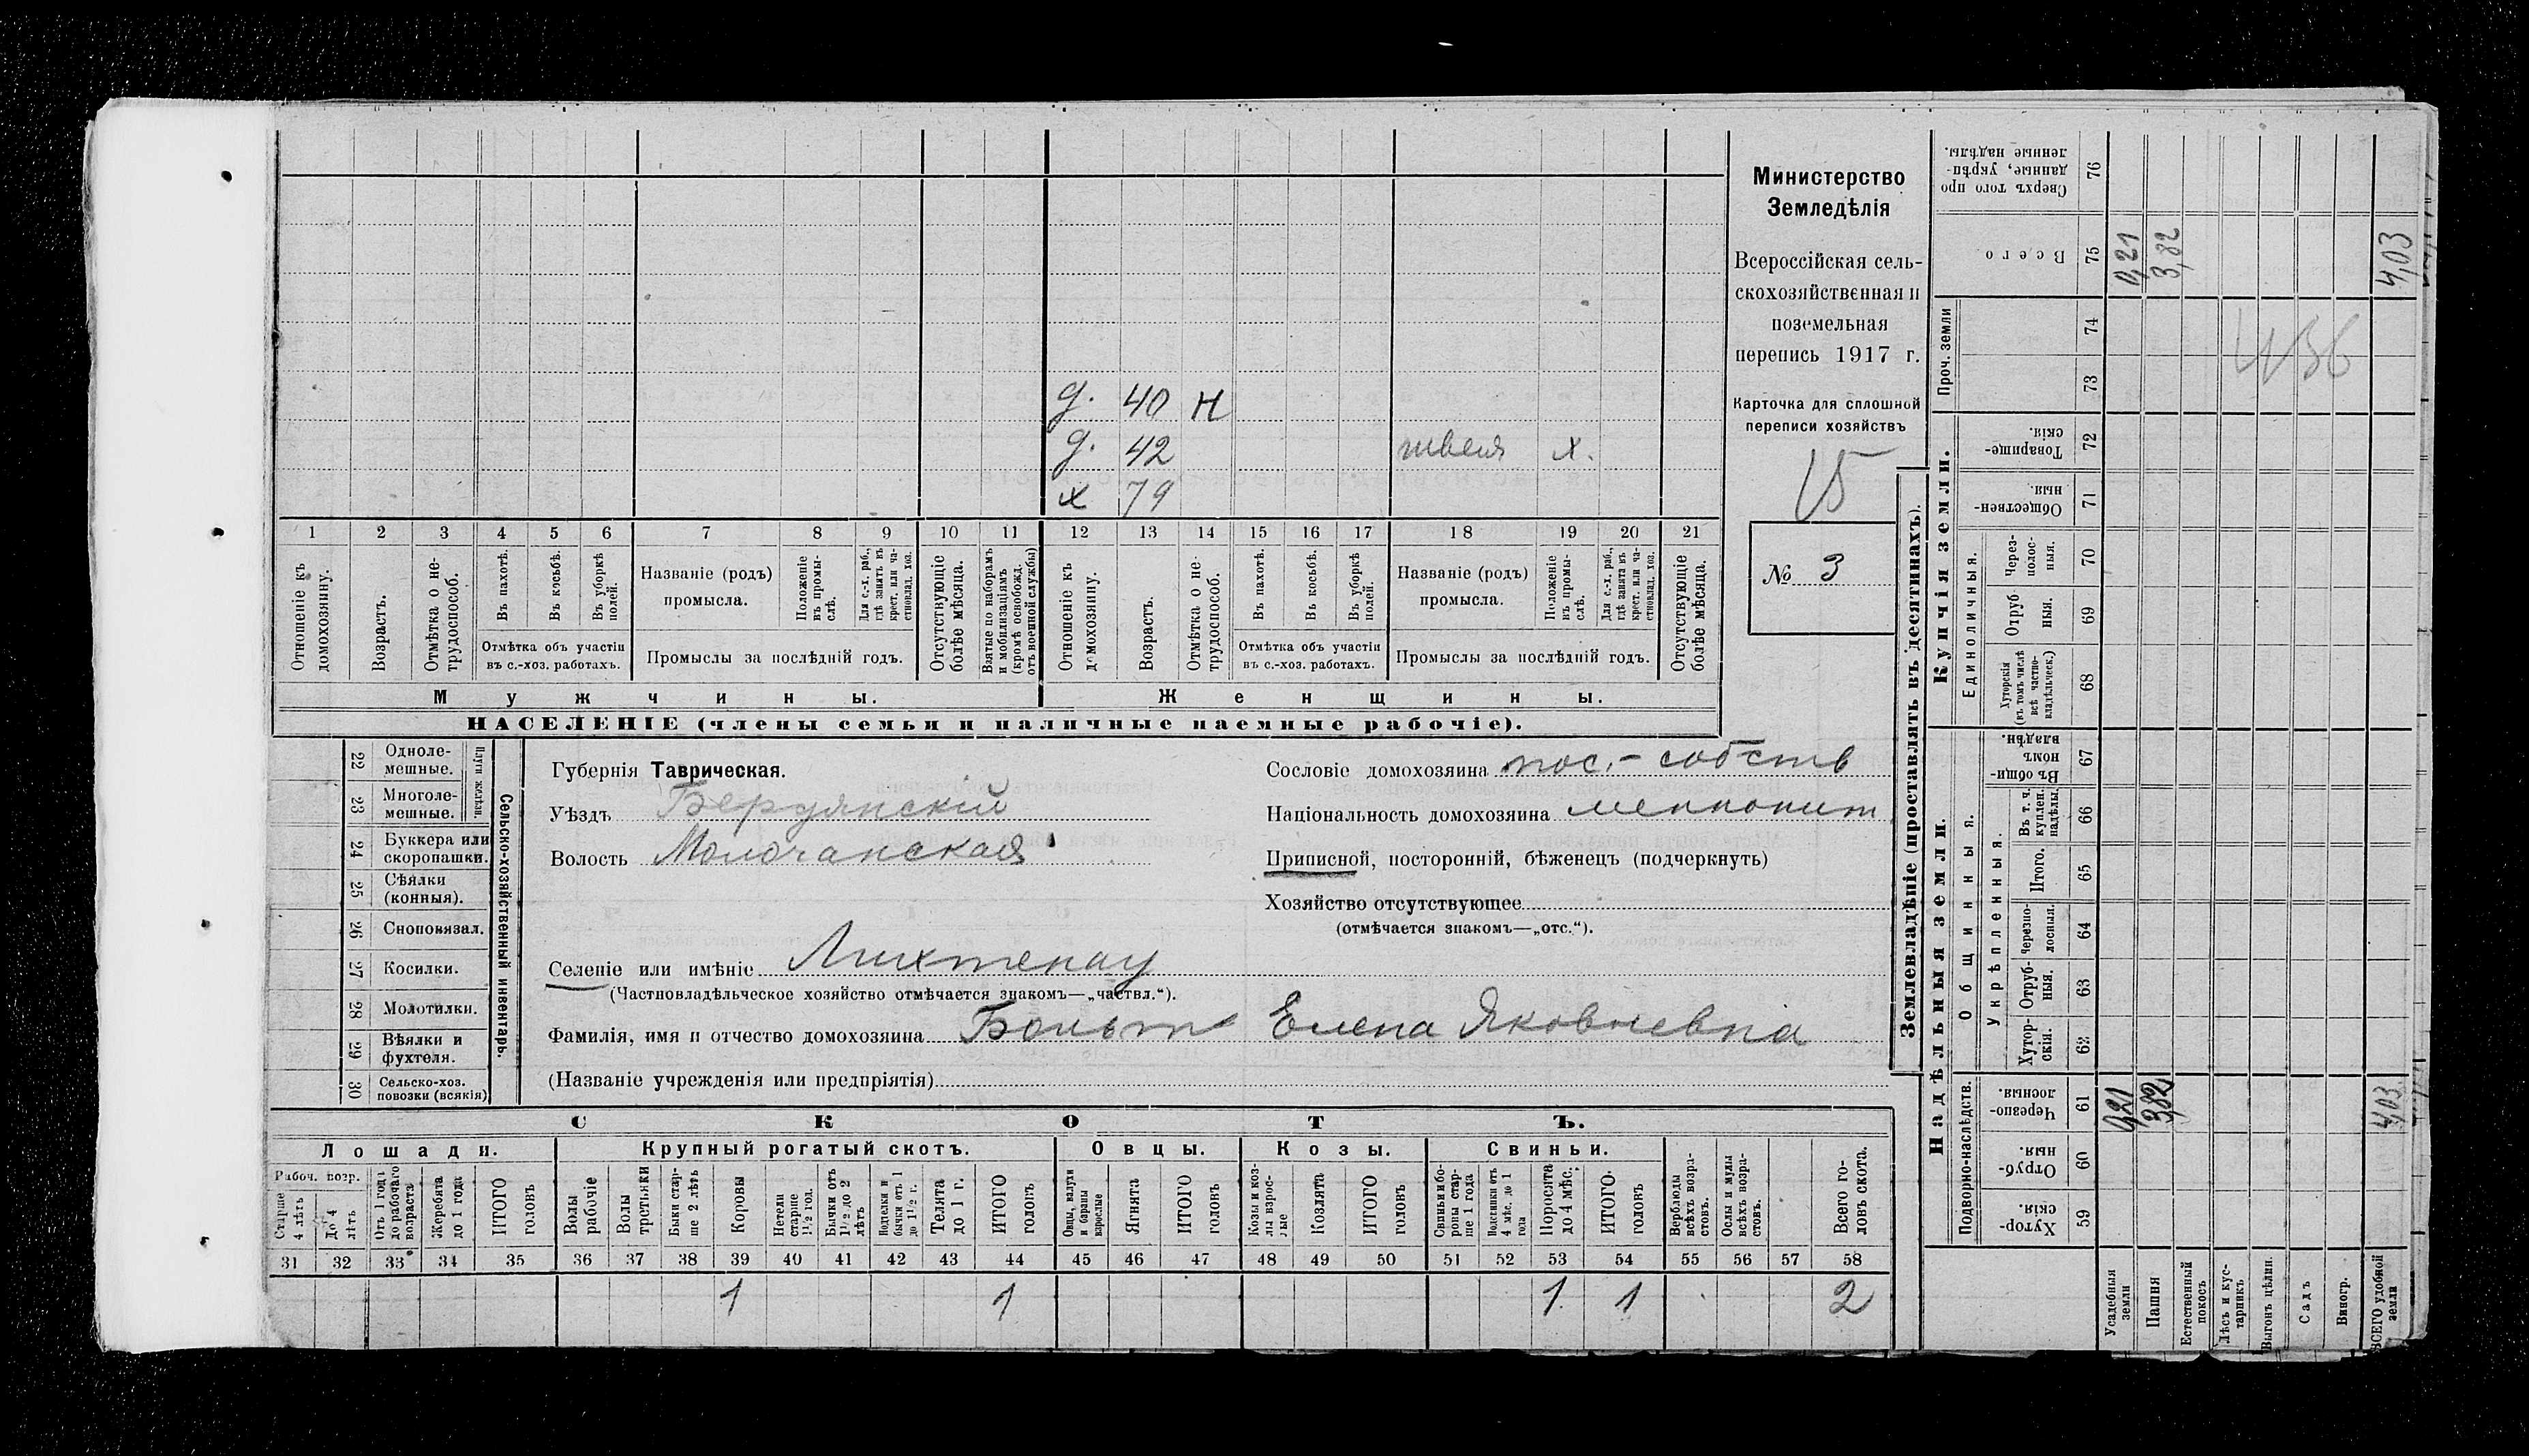 Министерство
Земледѣлія
Всероссійская сель-
скохозяйственная и
поземельная
перепись 1917 г.
Карточка для сплошной
переписи хозяйствъ
15
№ 3
д. 40 н
д. 42 швея х.
х 79
1 2 3 4 5 6 7 8 9 10 11 12 13 14 15 16 17 18 19 20 21
Отношеніе къ домохозяину.
Возрастъ.
Отмѣтка о не-
трудоспособ.
Въ пахотѣ.
Въ косьбѣ.
Въ уборкѣ полей.
Отмѣтка объ участіи
въ с.-хоз. работахъ.
Названіе (родъ)
промысла.
Положеніе въ промы-
слѣ.
Для с.-х. раб., гдѣ занятъ въ крест. или ча-
стновлад. хоз.
Промыслы за послѣдній годъ.
Отсутствующіе болѣе мѣсяца.
Взятые по наборамъ и мобилизаціямъ (кромѣ освобожд. отъ военной службы)
Отношеніе къ домохозяину.
Возрастъ.
Отмѣтка о не-
трудоспособ.
Въ пахотѣ.
Въ косьбѣ.
Въ уборкѣ полей.
Отмѣтка объ участіи
въ с.-хоз. работахъ.
Названіе (родъ)
промысла.
Положеніе въ промы-
слѣ.
Для с.-х. раб., гдѣ занята въ крест. или ча-
стновлад. хоз.
Промыслы за послѣдній годъ.
Отсутствующіе болѣе мѣсяца.
Мужчины.
Женщины.
НАСЕЛЕНІЕ (члены семьи и наличные наемные рабочіе).
22 Одноле-
мешные.
23 Многоле-
мешные.
Плуги желѣзн.
24 Буккера или
скоропашки.
25 Сѣялки
(конныя).
26 Сноповязал.
27 Косилки.
28 Молотилки.
29 Вѣялки и
фухтеля.
30 Сельско-хоз.
повозки (всякія)
Сельско-хозяйственный инвентарь.
Губернія Таврическая.
Уѣздъ Бердянскій
Волость Молочанская
Селеніе или имѣніе Лихтенау
(Частновладѣльческое хозяйство отмѣчается знакомъ—„частвл.“).
Фамилія, имя и отчество домохозяина Больт Елена Яковлевна
(Названіе учрежденія или предпріятія)
Сословіе домохозяина пос.-собств
Національность домохозяина меннонит
Приписной, посторонній, бѣженецъ (подчеркнуть)
Хозяйство отсутствующее
(отмѣчается знакомъ—„отс.“).
СКОТЪ.
Лошади.
Крупный рогатый скотъ.
Овцы.
Козы.
Свиньи.
Рабоч. возр.
Старше 4 лѣтъ
До 4 лѣтъ
Отъ 1 года до рабочаго возраста
Жеребята до 1 года
ИТОГО головъ
Волы рабочіе
Волы третьяки
Быки стар-
ше 2 лѣтъ
Коровы
Нетели старше 1½ год.
Бычки отъ 1½ до 2 лѣтъ
Подтелки и бычки отъ 1 до 1½ г.
Телята до 1 г.
ИТОГО головъ
Овцы, валухи и бараны взрослые
Ягнята
ИТОГО головъ
Козы и коз-
лы взрос-
лые
Козлята
ИТОГО головъ
Свиньи и бо-
ровы стар-
ше 1 года
Подсвинки отъ 4 мѣс. до 1 года
Поросята до 4 мѣс.
ИТОГО головъ
Верблюды всѣхъ возра-
стовъ.
Ослы и мулы всѣхъ возра-
стовъ.
Всего го-
ловъ скота.
31 32 33 34 35 36 37 38 39 40 41 42 43 44 45 46 47 48 49 50 51 52 53 54 55 56 57 58
1 1 1 1 2
Землевладѣніе (проставлять въ десятинахъ).
Надѣльныя земли.
Купчія земли.
Проч. земли
Подворно-наслѣдств.
Общинныя.
Укрѣпленныя.
Единоличныя.
Сверхъ того про
данные, укрѣп-
ленные надѣлы.
76
Всего
75
0,21
3,82
4,03
74
73
436
Товарище-
скія.
72
Обществен-
ныя.
71
Через-
полос-
ныя.
70
Отруб
ныя.
69
Хуторскія
(въ томъ числѣ
всѣ частно-
владѣльческ.)
68
Въ общин-
номъ
владѣн.
67
Въ т. ч.
куплен.
надѣлы.
66
Итого.
65
Черезпо-
лосныя.
64
Отруб-
ныя.
63
Хутор-
скія.
62
Черезпо-
лосныя
61
0,21
3,82
4,03
Отруб-
ныя.
60
Хутор-
скія.
59
Усадебныя
земли
Пашня
Естественный
покосъ
Лѣсъ и кус-
тарникъ
Выгонъ цѣлин.
Садъ
Виногр.
ВСЕГО удобной
земли